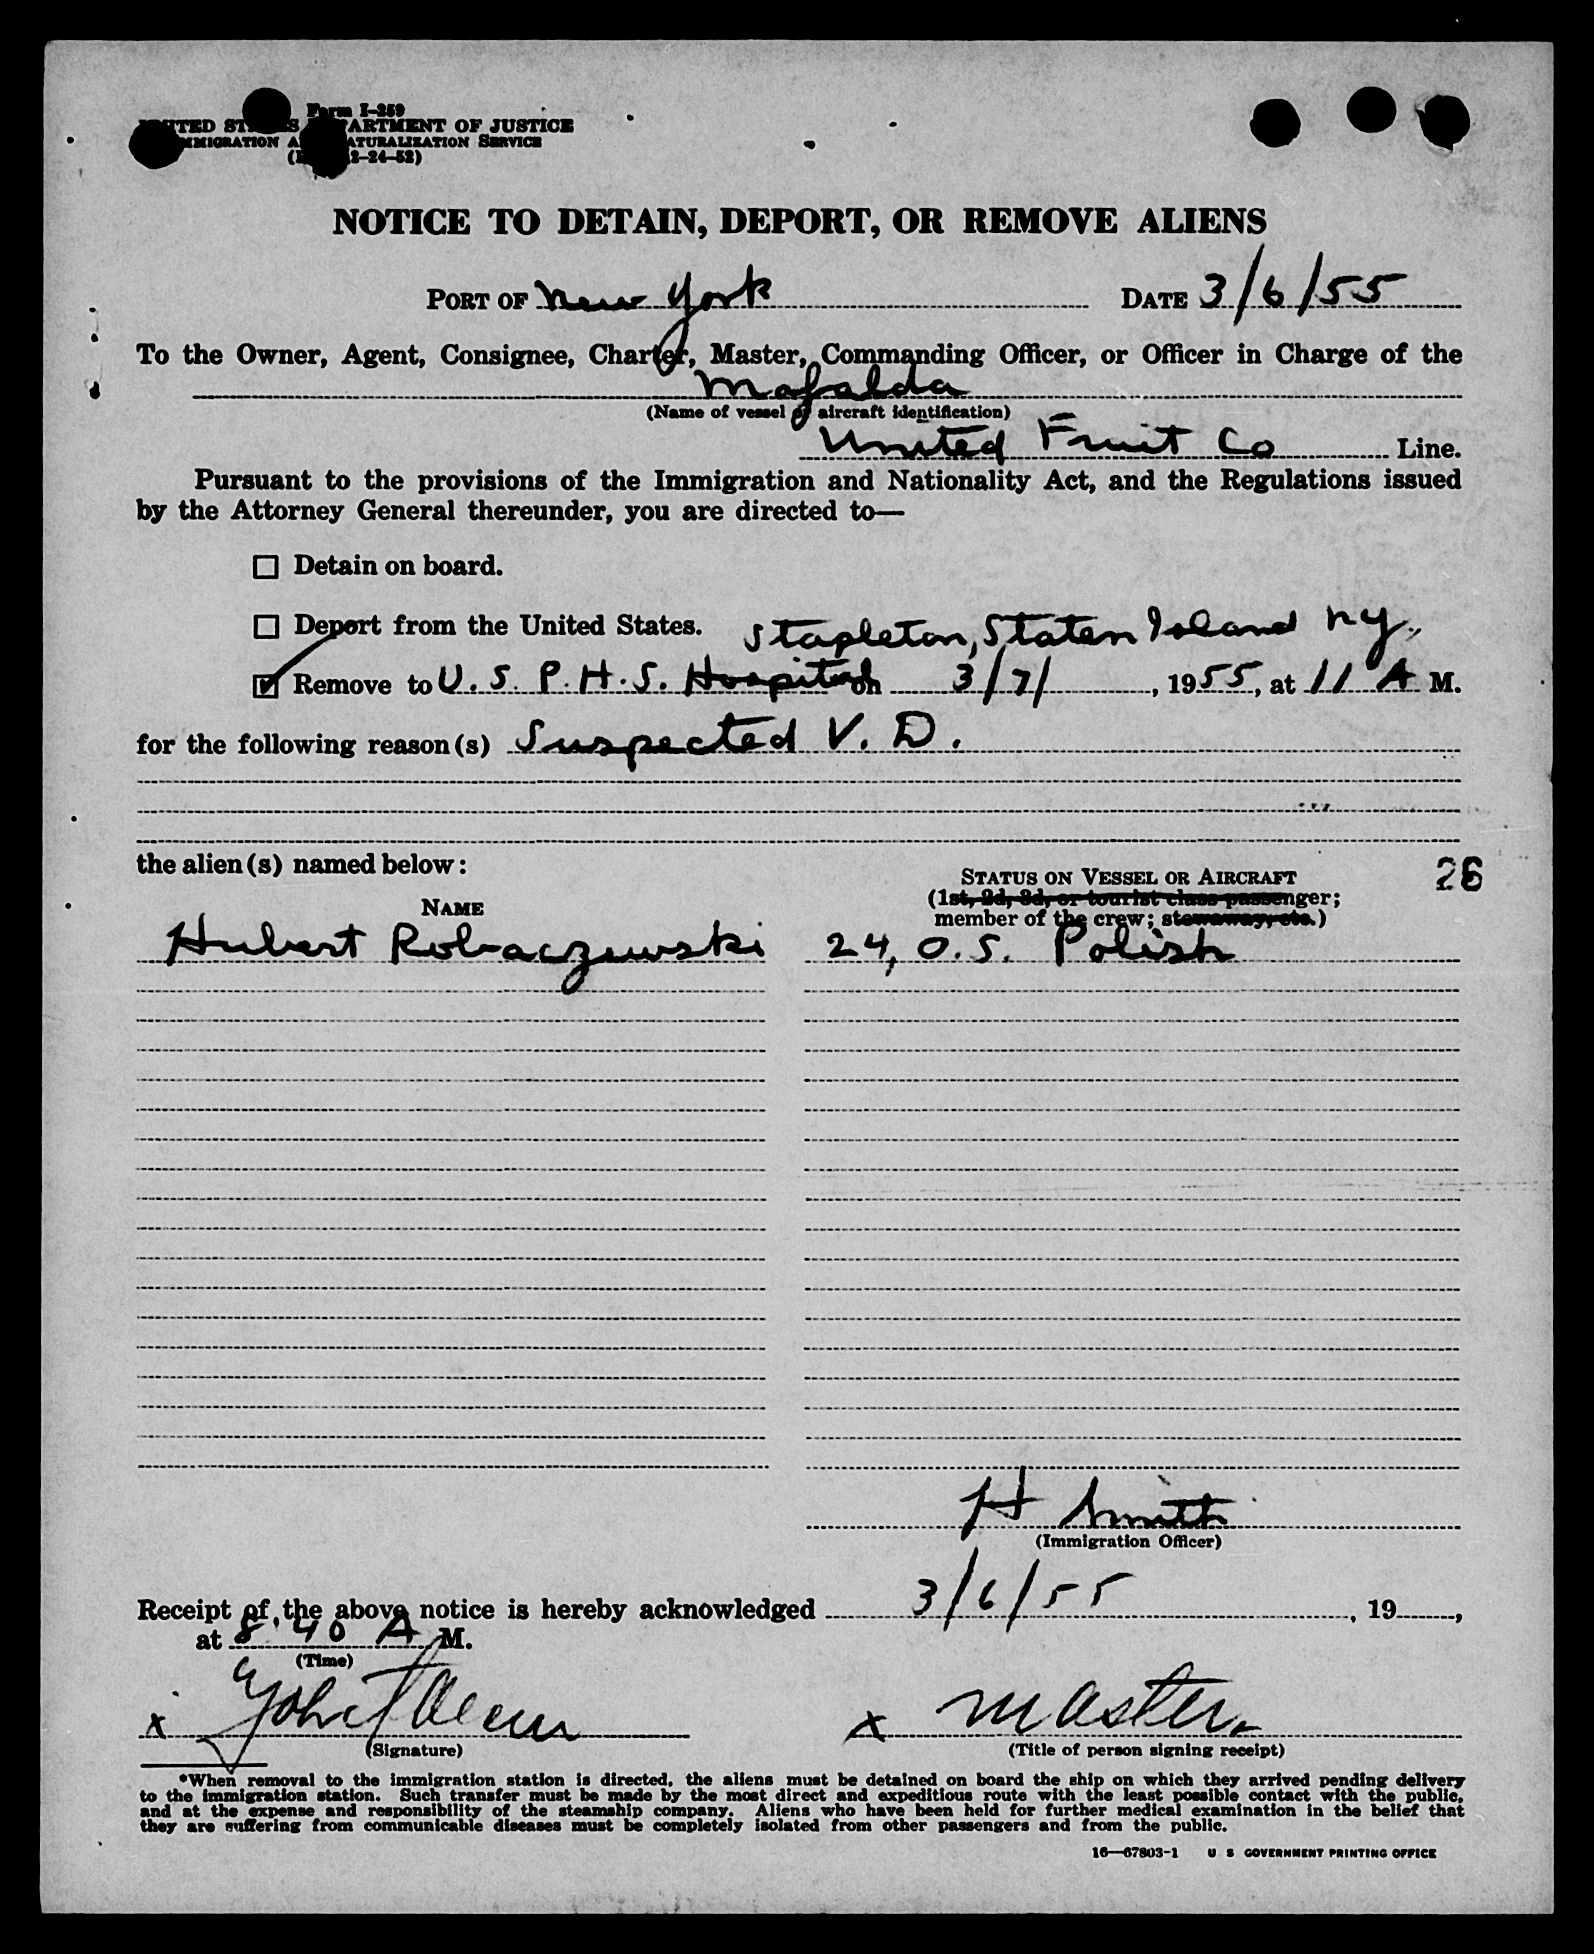 Form I-259
UNITED STATES DEPARTMENT OF JUSTICE
IMMIGRATION AND NATURALIZATION SERVICE
2-24-52)
NOTICE TO DETAIN, DEPORT, OR REMOVE ALIENS
PORT OF New York DATE 3/6/55
To the Owner, Agent, Consignee, Charter, Master, Commanding Officer, or Officer in Charge of the
Mafalda
(Name of vessel or aircraft identification)
United Fruit Co Line.
Pursuant to the provisions of the Immigration and Nationality Act, and the Regulations issued
by the Attorney General thereunder, you are directed to—
Detain on board.
Deport from the United States.
Stapleton, Staten Island NY.
Remove to U. S. P. H. S. Hospital on 3/7/, 1955, at 11 A M.
for the following reason(s) Suspected V. D.
the alien(s) named below:
26
STATUS ON VESSEL OR AIRCRAFT
(1st, 2d, 3d, or tourist class passenger;
member of the crew; stowaway, etc.)
NAME
Hubert Robaczewski 24, O.S. Polish
H Smith
(Immigration Officer)
Receipt of the above notice is hereby acknowledged 3/6/55, 19,
at 8:40 A M.
(Time)
x x Master.
(Signature) (Title of person signing receipt)
*When removal to the immigration station is directed, the aliens must be detained on board the ship on which they arrived pending delivery
to the immigration station. Such transfer must be made by the most direct and expeditious route with the least possible contact with the public,
and at the expense and responsibility of the steamship company. Aliens who have been held for further medical examination in the belief that
they are suffering from communicable diseases must be completely isolated from other passengers and from the public.
16—67803-1 U S GOVERNMENT PRINTING OFFICE